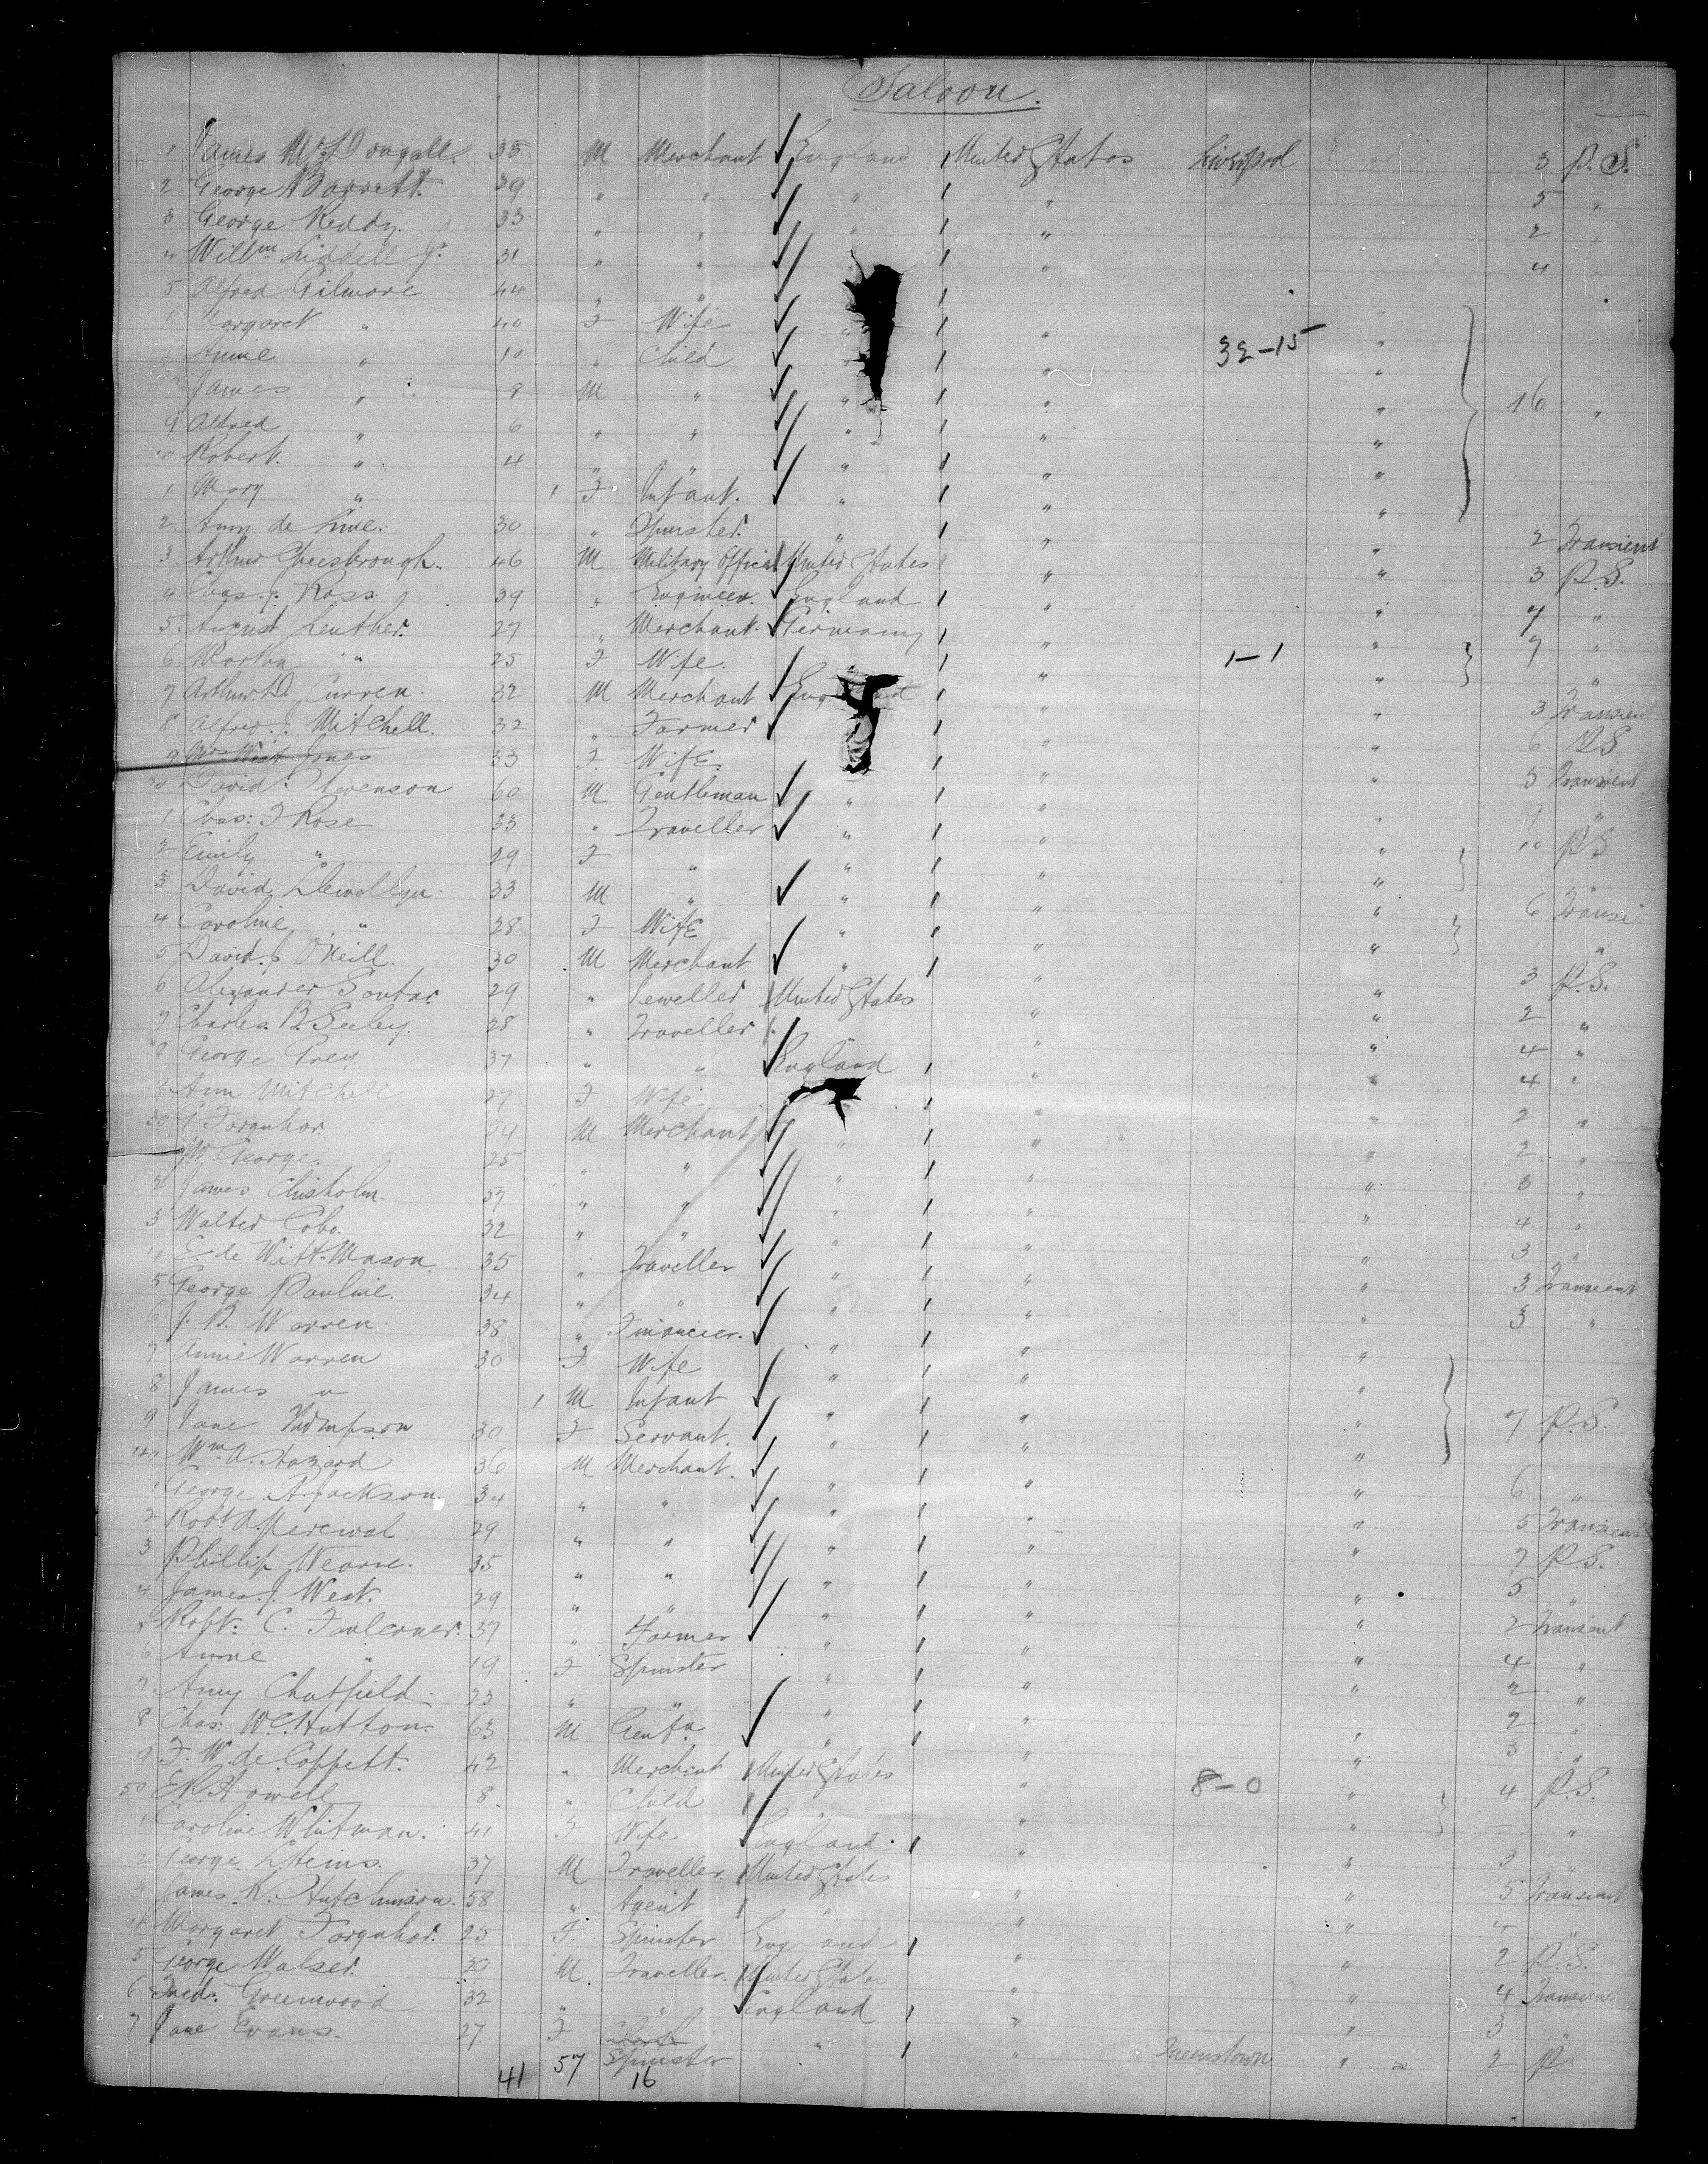 Saloon.
1 James McDougall. 35 M Merchant England United States Liverpool 3 P.S.
2 George Barrett. 39 " " " " 5 "
3 George Reddy. 33 " " " " 2
4 Willm Liddell Jr 31 " " " 4
5 Alfred Gilmore 44 " "
Margaret " 40 F Wife " " "
Annie " 10 " Child " " 32-15
James " 8 M " " " "
9 Alfred " 6 " " " " " 16 "
Robert. " 4 " " " " "
1 Mary " 1 F Infant. " " "
2 30 " Spinster. " " " 2 Transient
3 Arthur Cheesbrough. 46 M Military Officer United States " " 3 P.S.
4 Chas. J. Ross 39 " Engineer. England " " "
5 August Leuther. 27 " Merchant. Germany " " "
6 Martha " 25 F Wife. " 1-1 " "
7 Arthur D. Curren. 32 M Merchant England " " 3 Transien
8 Alfred J. Mitchell. 32 " Farmer " " 6 P.S
9 Jones 33 F Wife. " " 5 Transient
20 David Stevenson 60 M Gentleman " " " "
1 Chas: F Rose 33 " Traveller " " " 10 P.S
2 Emily " 29 F " " " "
3 David Llewellyn. 33 M " " " " 6 Transi
4 Caroline " 28 F Wife " " " "
5 David J O'Neill. 30 M Merchant " " " 3 P.S.
6 Alexander Soutar 29 " Jeweller United States " " 2 "
7 Charles B. Seeley. 28 " Traveller " " " 4 "
8 George Grey 37 " " England " " 4 "
9 Ann Mitchell 27 F Wife " " 2 "
30 Forquhar. M Merchant " " " 2 "
W. George. 25 " " " " " 3 "
2 James Chisholm. 57 " " " " " 4 "
3 Walter 32 " " " " " 3 "
4 E. de Witt-Mason. 35 " Traveller " " " 3 Transient
5 George Pauline. 34 " " " " " 3 "
6 J. B. Warren. 38 " Financier. " " "
7 Annie Warren 30 F Wife " " "
8 James " 1 M Infant " " "
9 Jane Thompson 30 F Servant. " " " 7 P.S.
40 Wm A. Hazard 36 M Merchant. " " " 6 "
1 George A. Jackson. 34 " " " " " 5 Transient
2 Robt A. Percival 29 " " " " " 7 P.S.
3 Phillip Wearne. 35 " " " " " 5 "
4 James J. West. 29 " " " " " 2 Transient
5 Robt. C. Faulconer. 37 " Farmer " " " 4 "
6 Annie " 19 F Spinster " " " 2 "
7 Amy Chatfield. 23 " " " " " 2 "
8 Chas: W. Hutton. 63 M Gentn. " " " 3 "
9 F. W. de Coppett. 42 " Merchant United States " 8-0 " 4 P.S.
50 E.R. Howell 8 " Child " " " "
1 Caroline Whitman. 41 F Wife England. " " 3 "
2 George 37 M Traveller. United States " " 5 Transient
3 James K. Hutchinson. 58 " Agent " " " 4 "
4 Margaret Forquhar. 25 F. Spinster England " " 2 P.S.
5 George Walser. 29 M. Traveller. United States " " 4 Transient
6 Fred: Greenwood 32 " " England " " 3 "
7 Jane Evans. 27. F. Spinster " " Queenstown " 2 P
41 57 16